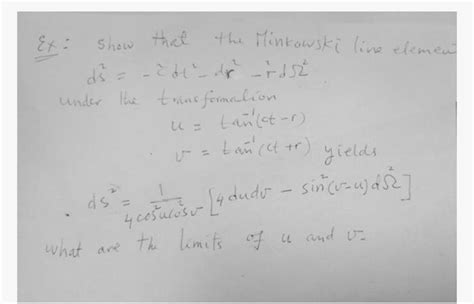 Ex: show that the Minkowski line elemen
ds² = -c²dt² - dr² - r²dΩ²
under the transformation
u = tan⁻¹(ct-r)
v = tan⁻¹(ct+r) yields
ds² = 1/4cos²ucos²v [4dudv - sin²(v-u)dΩ²]
what are the limits of u and v.